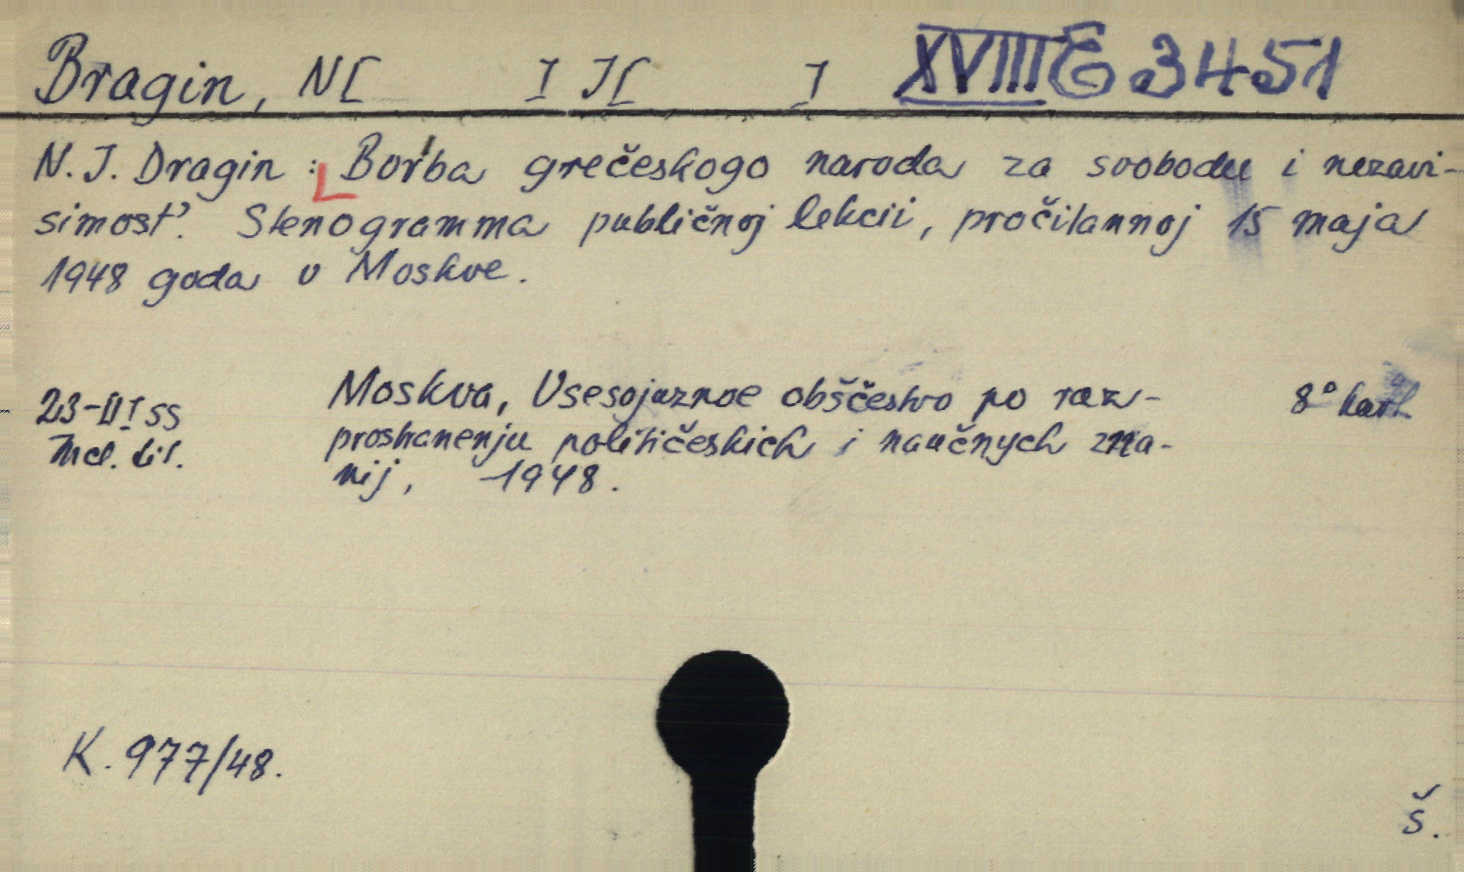 Bragin, N[ ] J[ ] XVIII E 3451
N. J. Bragin : Bor'ba grečeskogo naroda za svobodu i nezavi-
simost'. Stenogramma publičnoj lekcii, pročitannoj 15 maja
1948 goda v Moskve.
Moskva, Vsesojuznoe obščestvo po raz-
prostranenju političeskich i naučnych zna-
nij, 1948.
8° kart
23-II
K. 977/48.
Š.